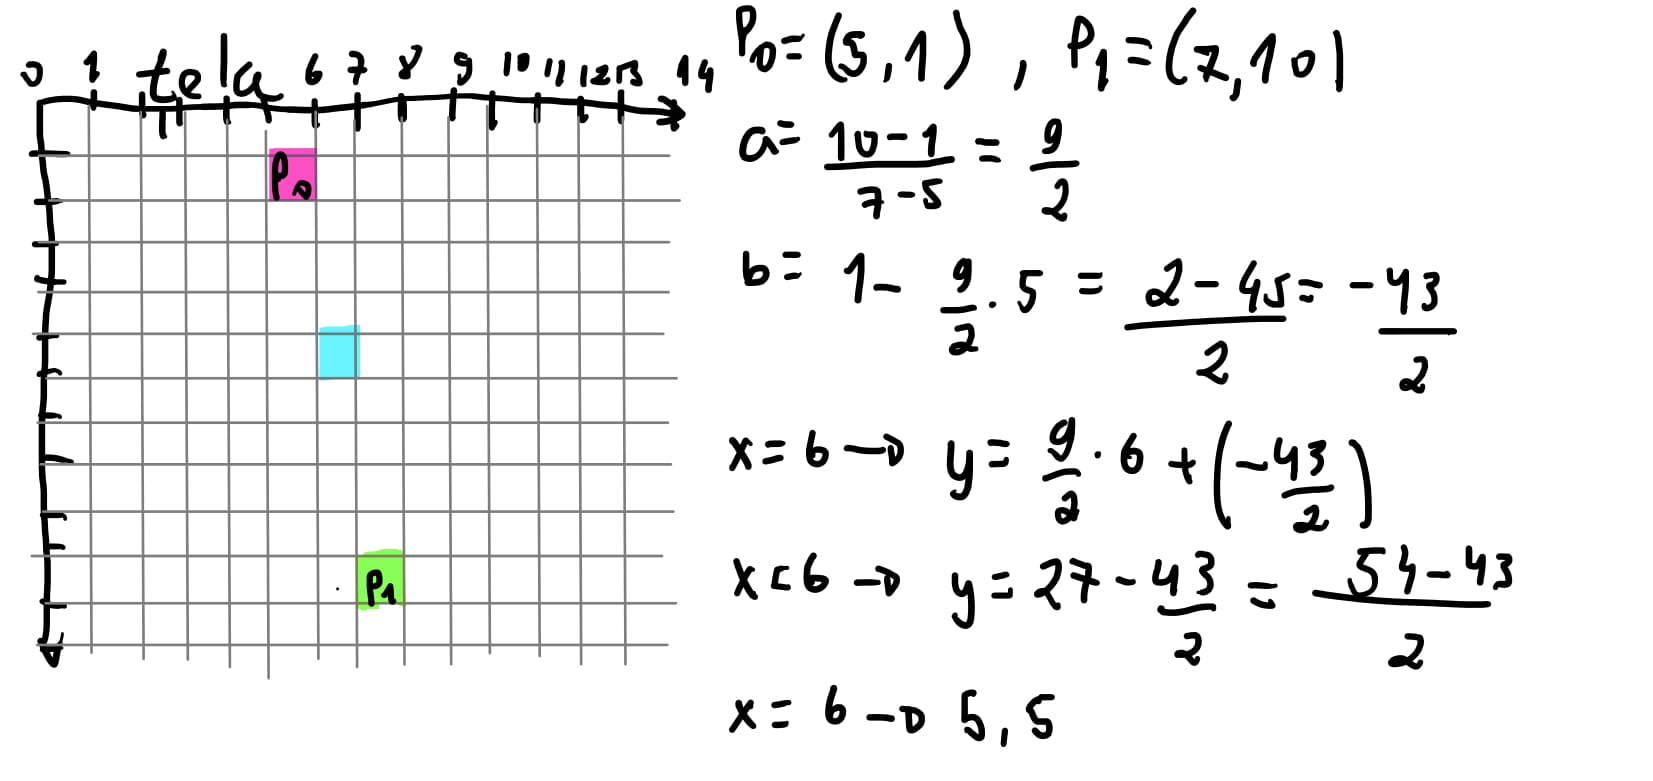 0 1 tela 6 7 8 9 10 11 12 13 14
P₀
P₁
P₀ = (5,1) , P₁ = (7,10)
a = (10-1)/(7-5) = 9/2
b = 1 - 9/2 . 5 = (2-45)/2 = -43/2
x = 6 → y = 9/2 . 6 + (-43/2)
x = 6 → y = 27 - 43/2 = (54-43)/2
x = 6 → 5,5